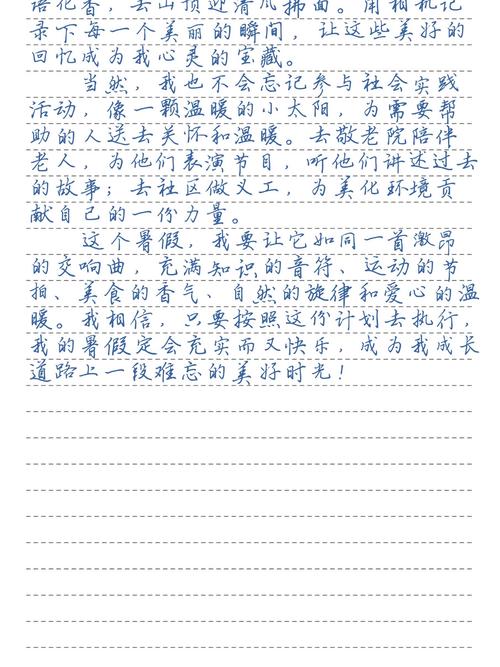 语花香，去山顶迎清风拂面。用相机记
录下每一个美丽的瞬间，让这些美好的
回忆成为我心灵的宝藏。
当然，我也不会忘记参与社会实践
活动，像一颗温暖的小太阳，为需要帮
助的人送去关怀和温暖。去敬老院陪伴
老人，为他们表演节目，听他们讲述过去
的故事；去社区做义工，为美化环境贡
献自己的一份力量。
这个暑假，我要让它如同一首激昂
的交响曲，充满知识的音符、运动的节
拍、美食的香气、自然的旋律和爱心的温
暖。我相信，只要按照这份计划去执行，
我的暑假定会充实而又快乐，成为我成长
道路上一段难忘的美好时光！